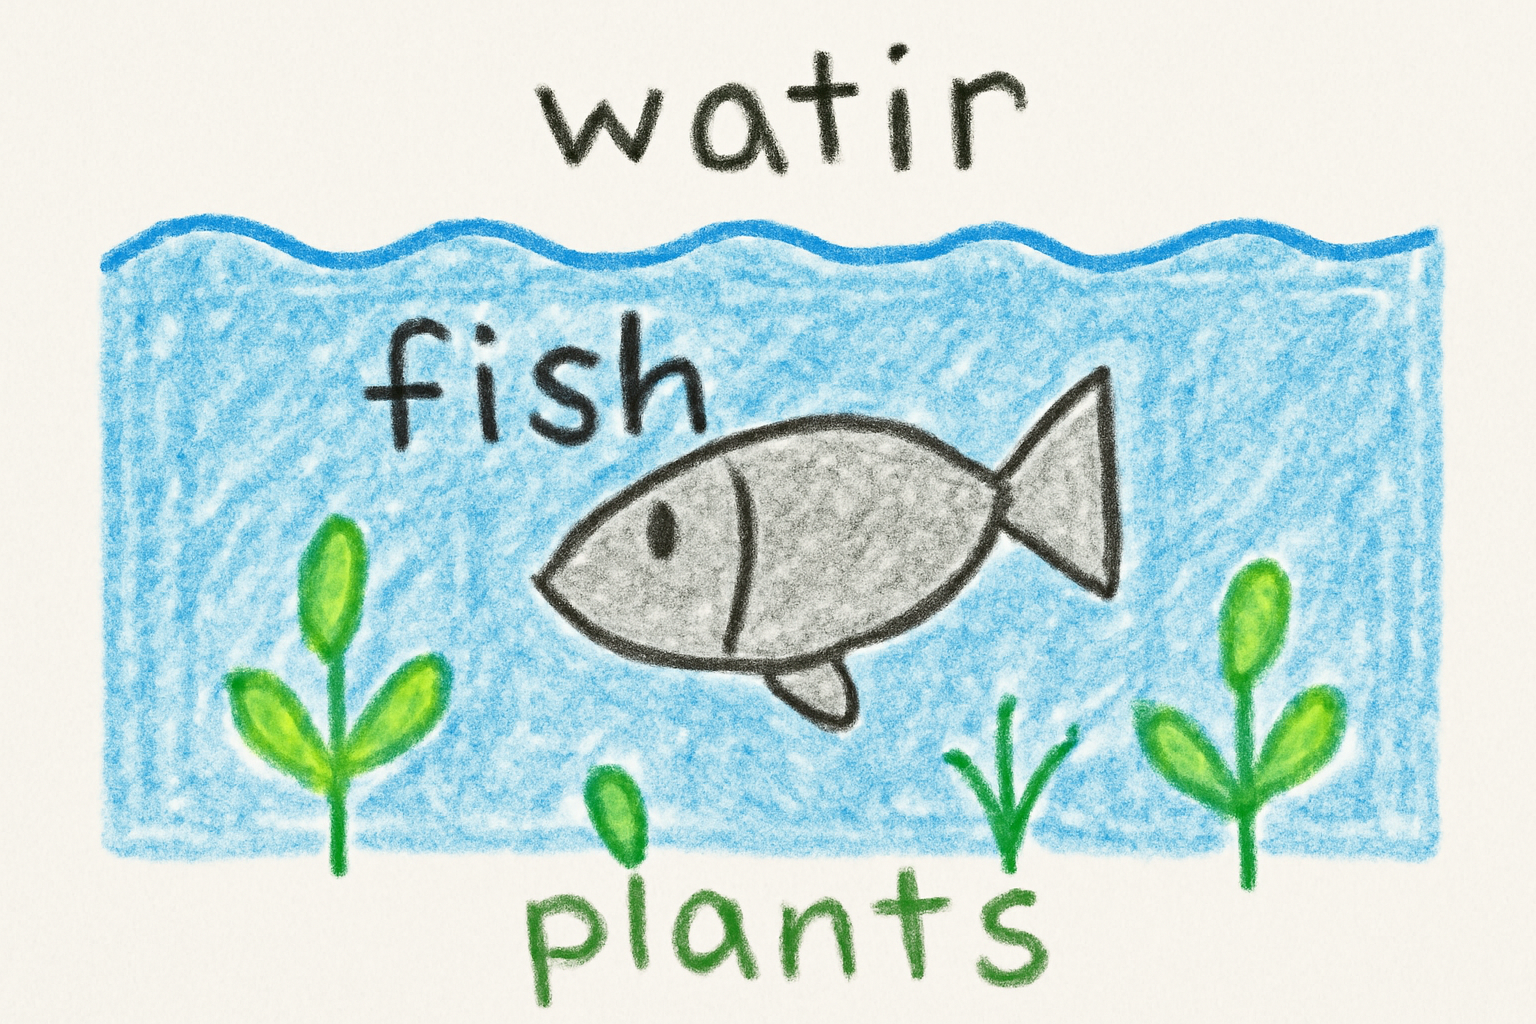 watir
fish
plants